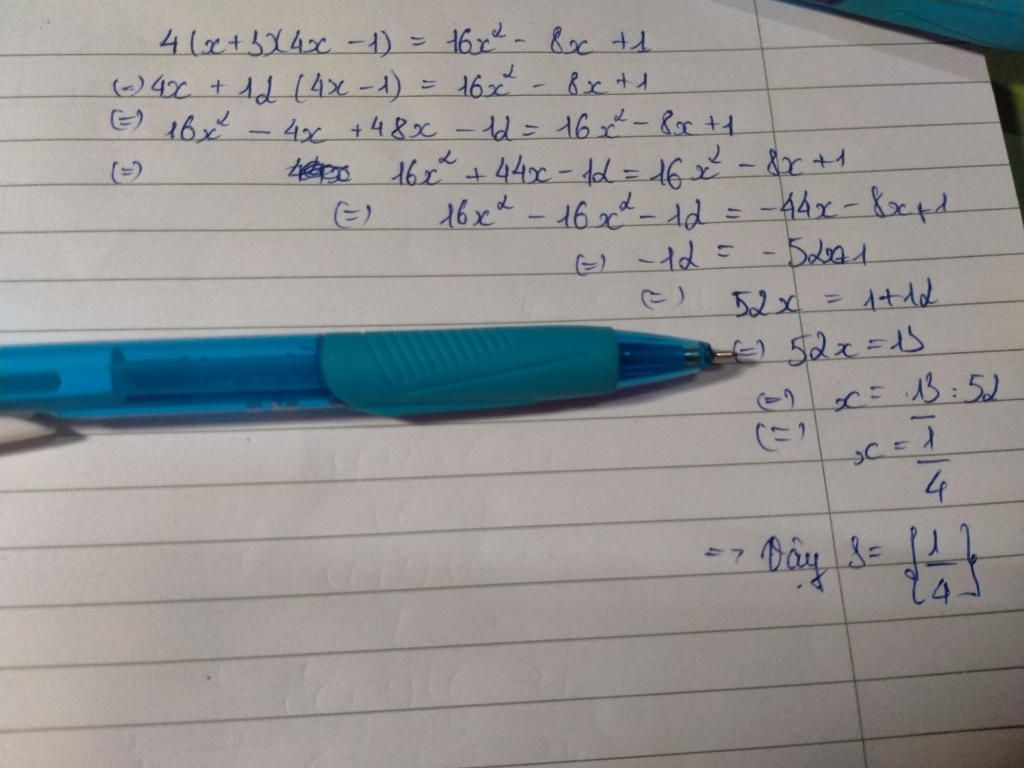 4(x+3)(4x-1) = 16x² - 8x +1
(=) 4x + 12 (4x-1) = 16x² - 8x+1
(=) 16x² - 4x +48x - 12 = 16x² - 8x+1
(=) 16x² + 44x - 12 = 16x² - 8x+1
(=) 16x² - 16x² - 12 = -44x - 8x+1
(=) -12 = -52x+1
(=) 52x = 1+12
(=) 52x = 13
(=) x = 13 : 52
(=) x = 1/4
=> Vậy S = {1/4}